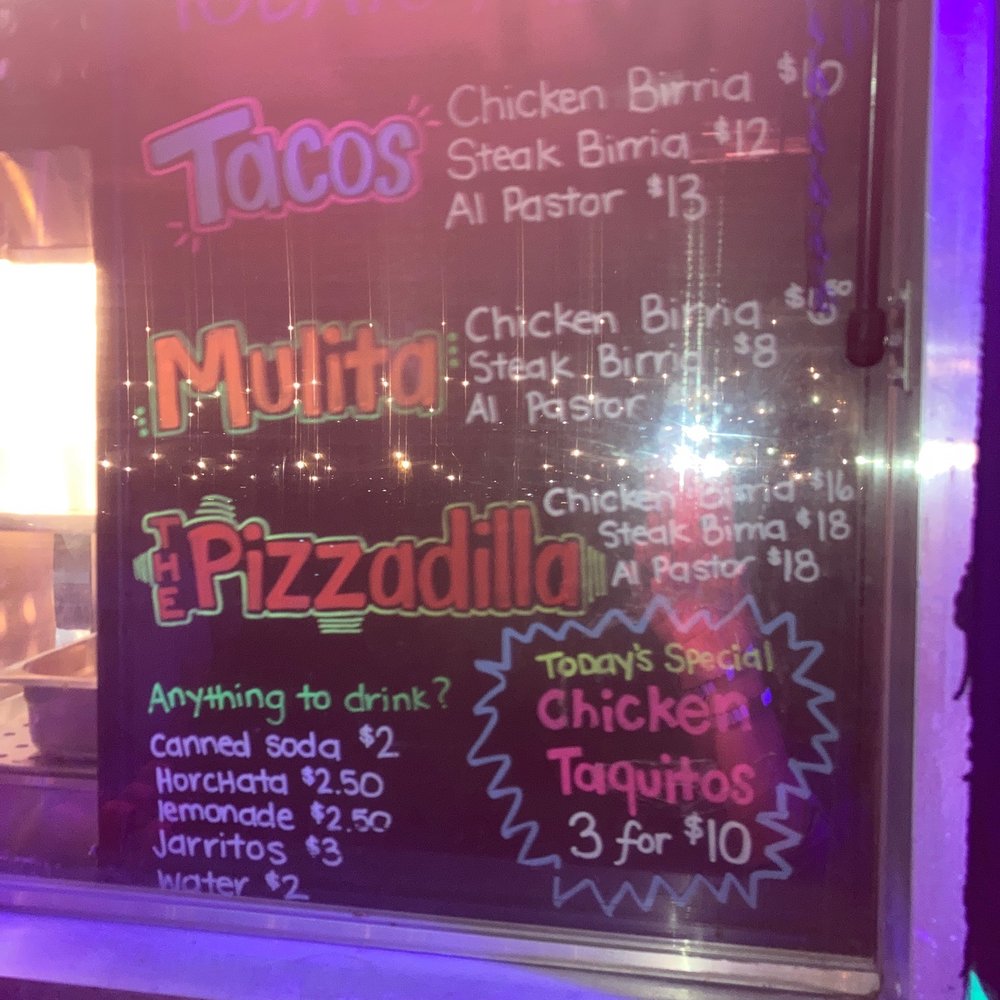 Tacos
Chicken Birria $10
Steak Birria $12
Al Pastor $13
Mulita
Chicken Birria
Steak Birria $8
Al Pastor
THE Pizzadilla
Chicken Birria $16
Steak Birria $18
Al Pastor $18
Anything to drink?
Canned soda $2
HorcHata $2.50
lemonade $2.50
Jarritos $3
Water $2
Today's Special
Chicken
Taquitos
3 for $10